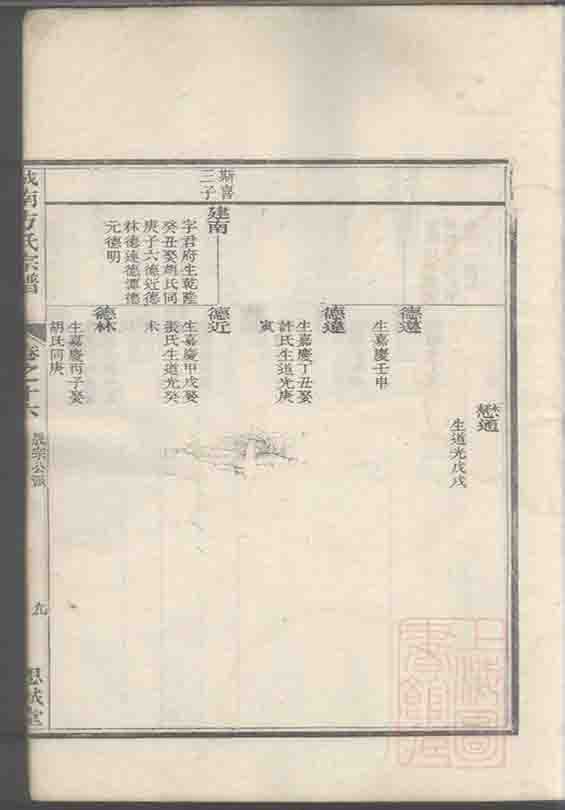 懋通
生道光戊戌
德達
生嘉慶壬申
德遠
生嘉慶丁丑娶
許氏生道光庚
寅
斯喜
三子
建南
字君府生乾隆
癸丑娶胡氏同
庚子六德近德
林德達德譚德
元德明
德近
生嘉慶甲戌娶
張氏生道光癸
未
德林
生嘉慶丙子娶
胡氏同庚
城南方氏宗譜
卷之十六
宗公派
九
思誠堂
上海圖書館藏